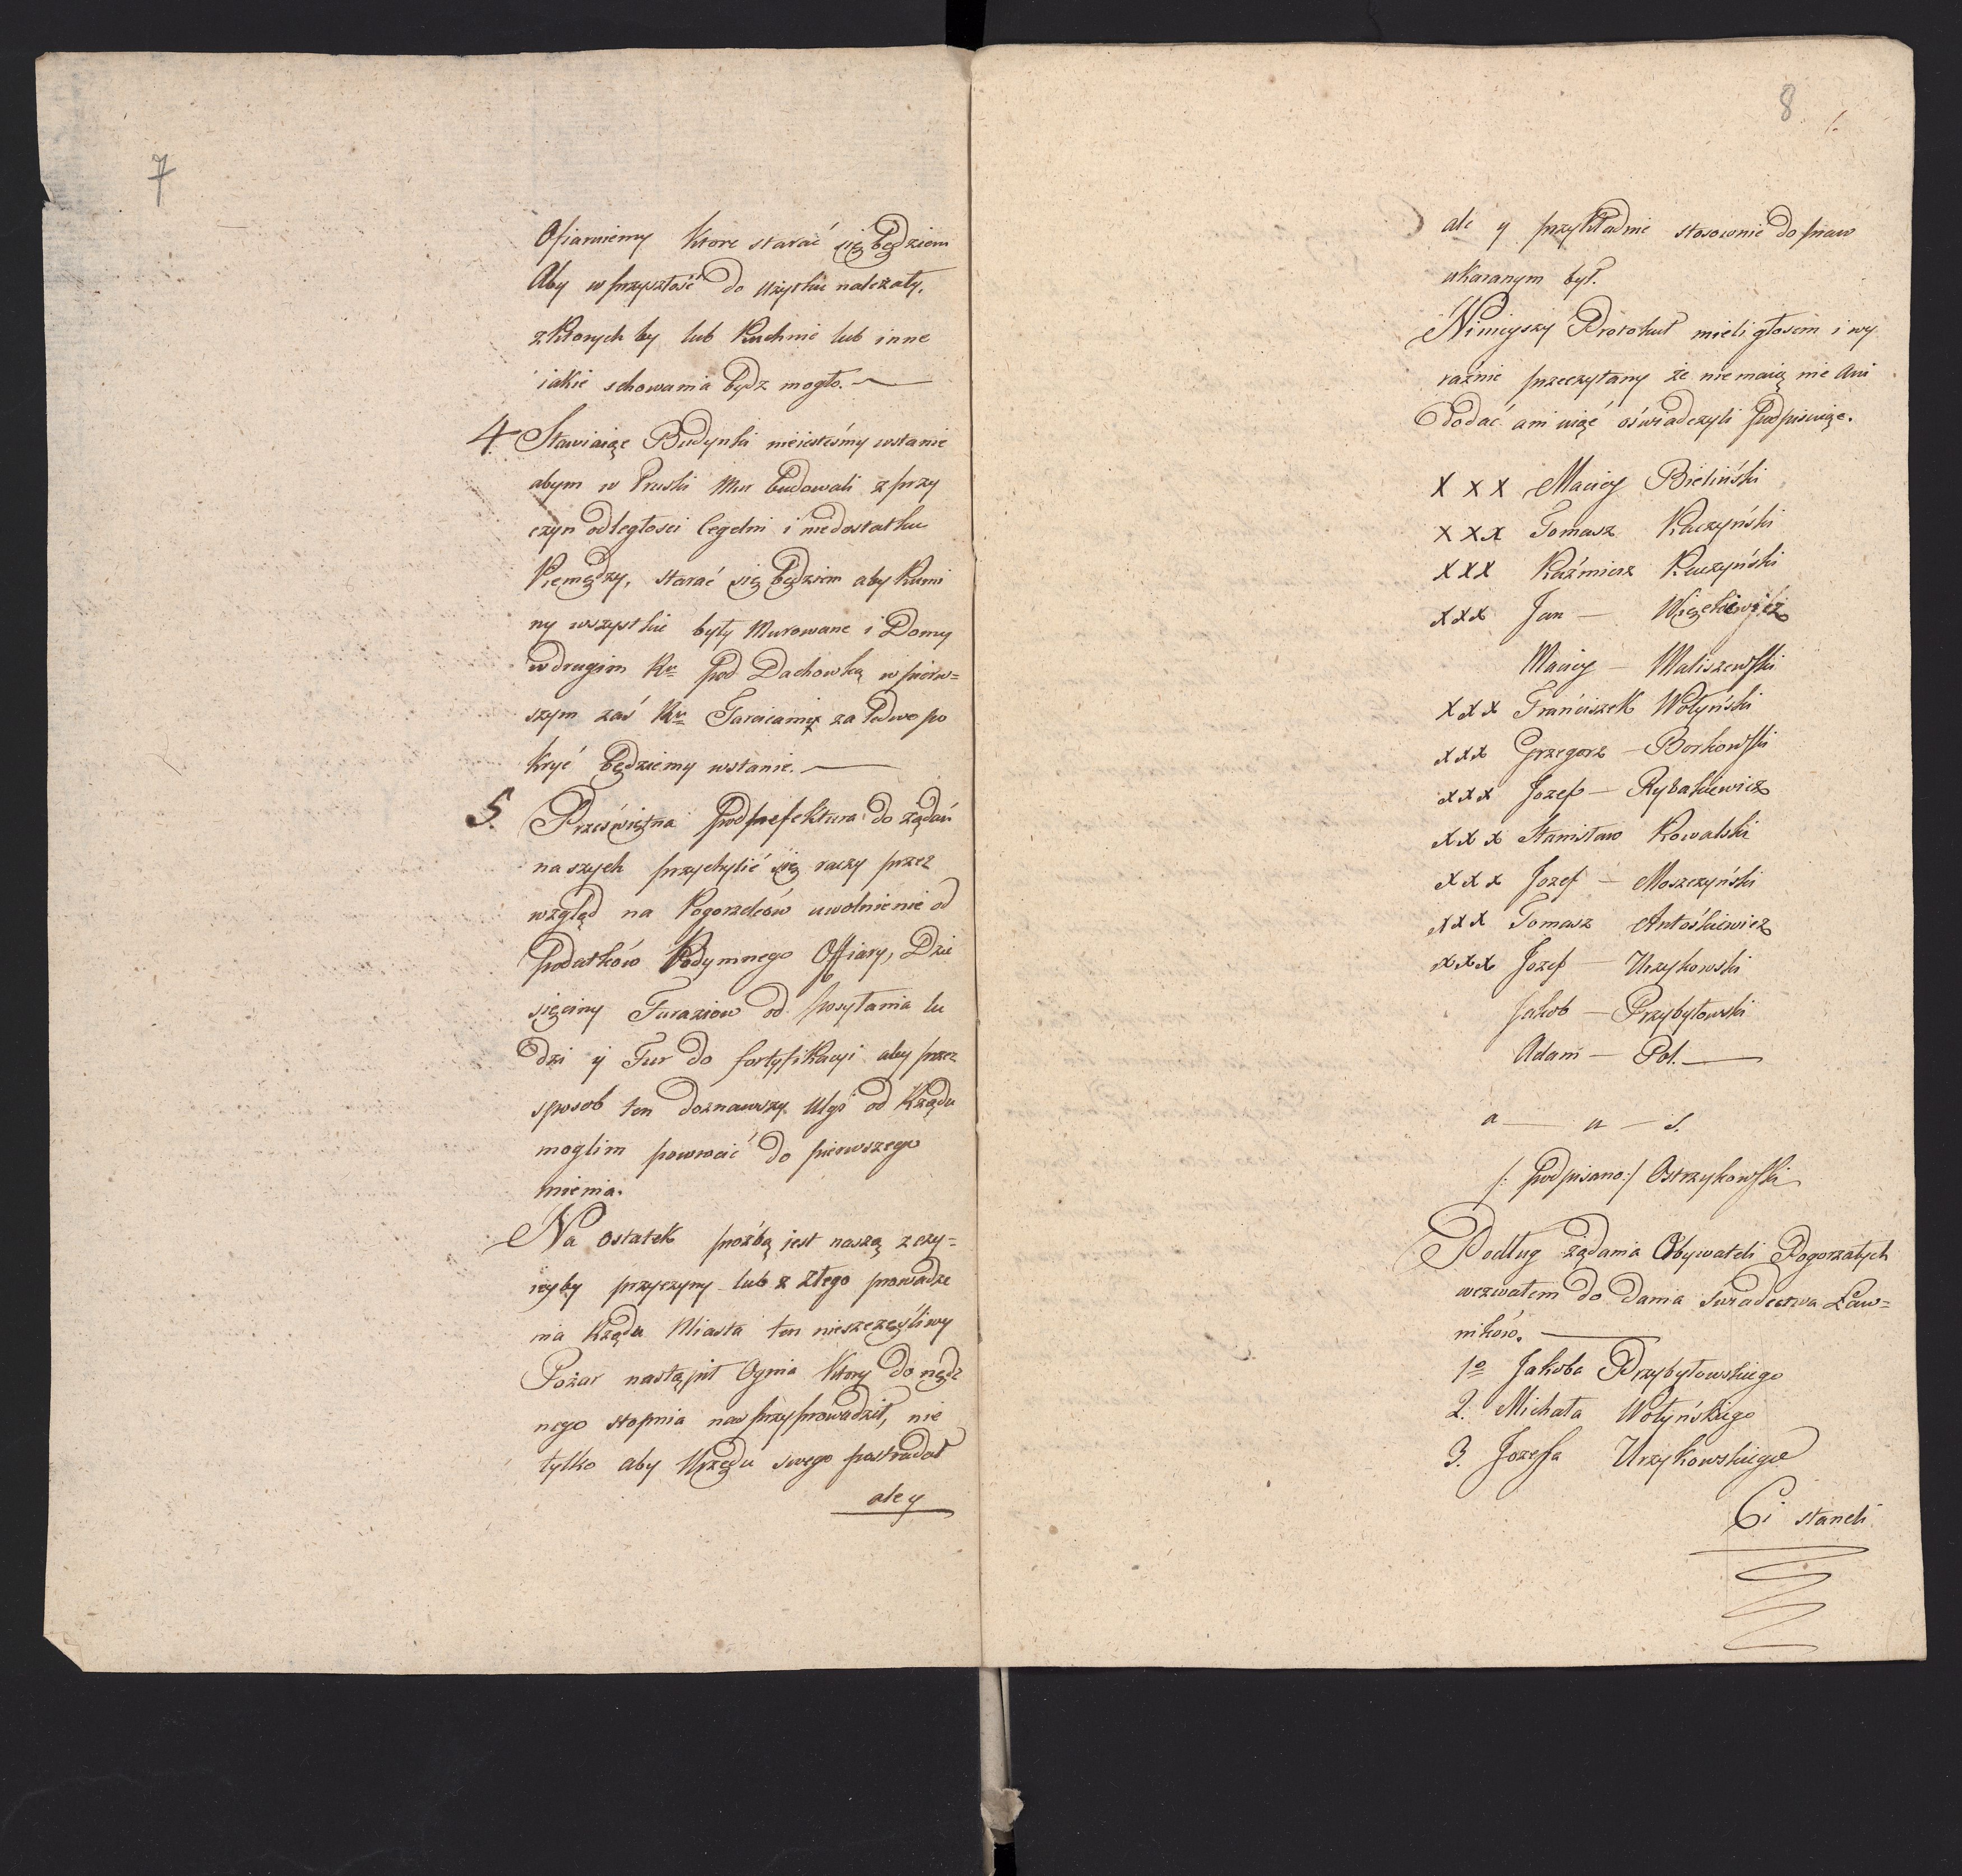 7
Ofiarniemy ktore starać się będziem
Aby w przyszłość do użytku należały,
z ktorych by lub kuchnie lub inne
iakie schowania bydz mogło. —
4. Stawiaiąc Budynki nieiesteśmy wstanie
abym w Pruski Mur budowali z przy
czyn odległosci Cegelni i niedostatku
Pieniędzy, starać się będziem aby komi
ny wszystkie były murowane i Domy
w drugim Rw pod Dachowką w pierw=
szym zaś Rw Tarcicami za ledwo po
kryć będziemy wstanie. —
5. Prześwietna Podprefektura do żądań
naszych przychylić się raczy przez
wzgląd na Pogorzelców uwolnienie od
podatków Podymnego Offiary, Dzie
sięciny Furazion od posyłania lu
dzi y Fur do fortyfikacyi aby przez
sposob ten doznawszy Ulgi od Rządu
moglim powrocić do pierwszego
mienia.
Na ostatek proźbą jest naszą z czy=
ieyby przyczyny lub z złego prowadze
nia Rządu Miasta ten nieszczęśliwy
Pożar nastąpił Ognia ktory do nędz
nego stopnia nas przyprowadził, nie
tylko aby Urzędu swego postradał
ale y
8
ale y przykładnie stosownie do praw
ukaranym był.
Ninieyszy Protokuł mieli głosem i wy
raźnie przeczytany że nie maią nic ani
dodać ani uiąć oświadczyli podpisuiąc.
X X X Maciey Bieliński
X X X Tomasz Kuczyński
X X X Kaźmierz Kuczyński
X X X Jan — Więckiewicz
Maciey — Maliszewski
X X X Franciszek Wołyński
X X X Grzegorz — Borkowski
X X X Jozef — Rybakiewicz
X X X Stanisław Kowalski
X X X Jozef — Moszczyński
X X X Tomasz Antośkiewicz
X X X Jozef — Urzykowski
Jakob — Przybyłowski
Adam — Pol. —
a — u — s.
/: podpisano :/ Ostrzykowski
Podług żądania Obywateli Pogorzałych
wezwałem do dania świadectwa Ław=
ników. —
1o Jakoba Przybyłowskiego
2. Michała Wołyńskiego
3. Jozefa Urzykowskiego
Ci staneli